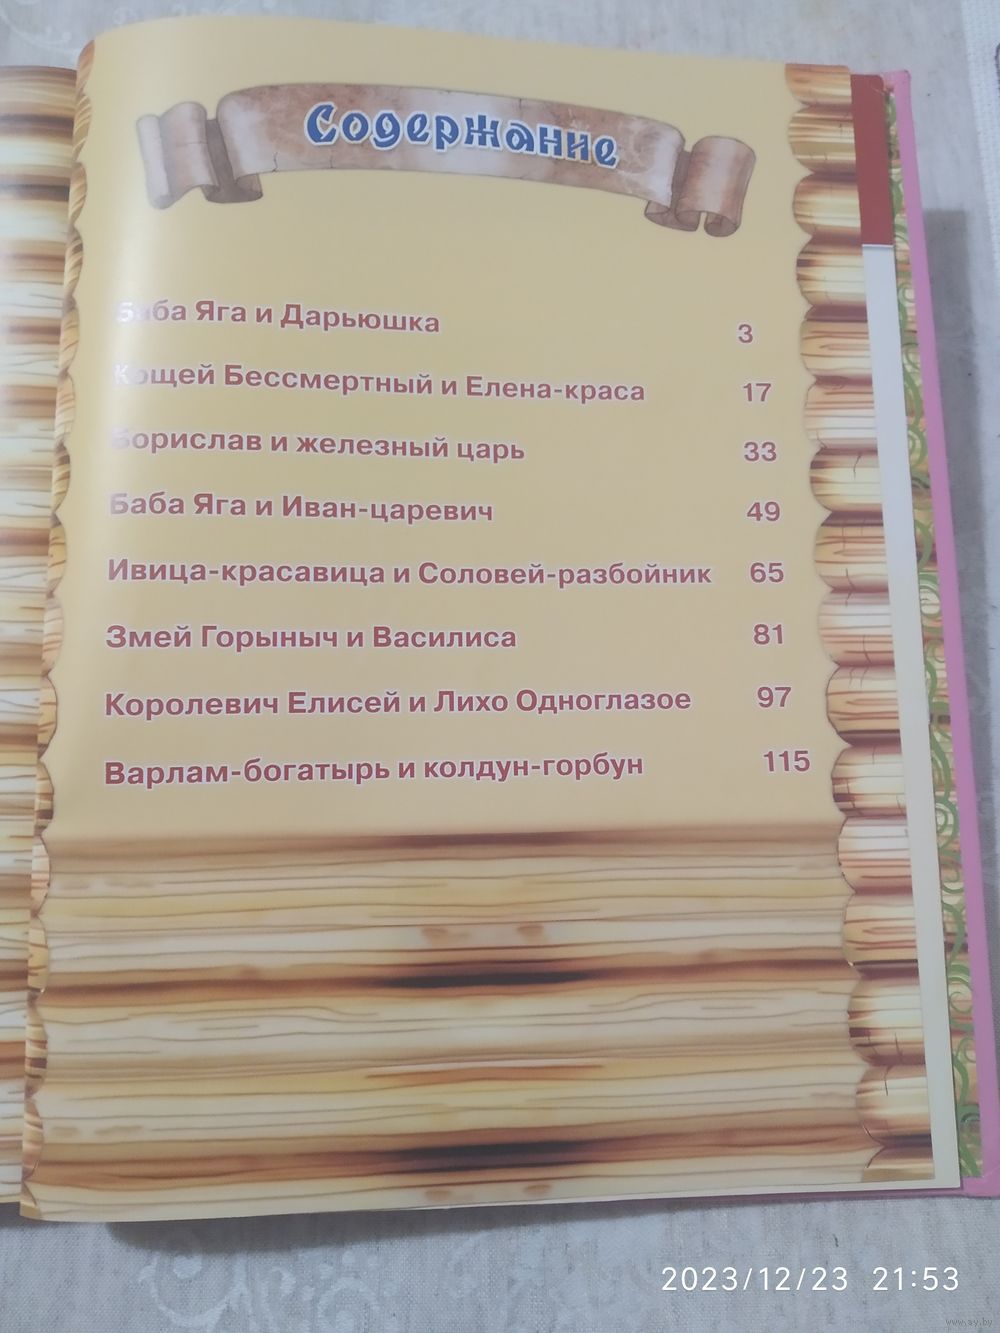 Содержание
Баба Яга и Дарьюшка 3
Кощей Бессмертный и Елена-краса 17
Борислав и железный царь 33
Баба Яга и Иван-царевич 49
Ивица-красавица и Соловей-разбойник 65
Змей Горыныч и Василиса 81
Королевич Елисей и Лихо Одноглазое 97
Варлам-богатырь и колдун-горбун 115
2023/12/23 21:53
www.ay.by